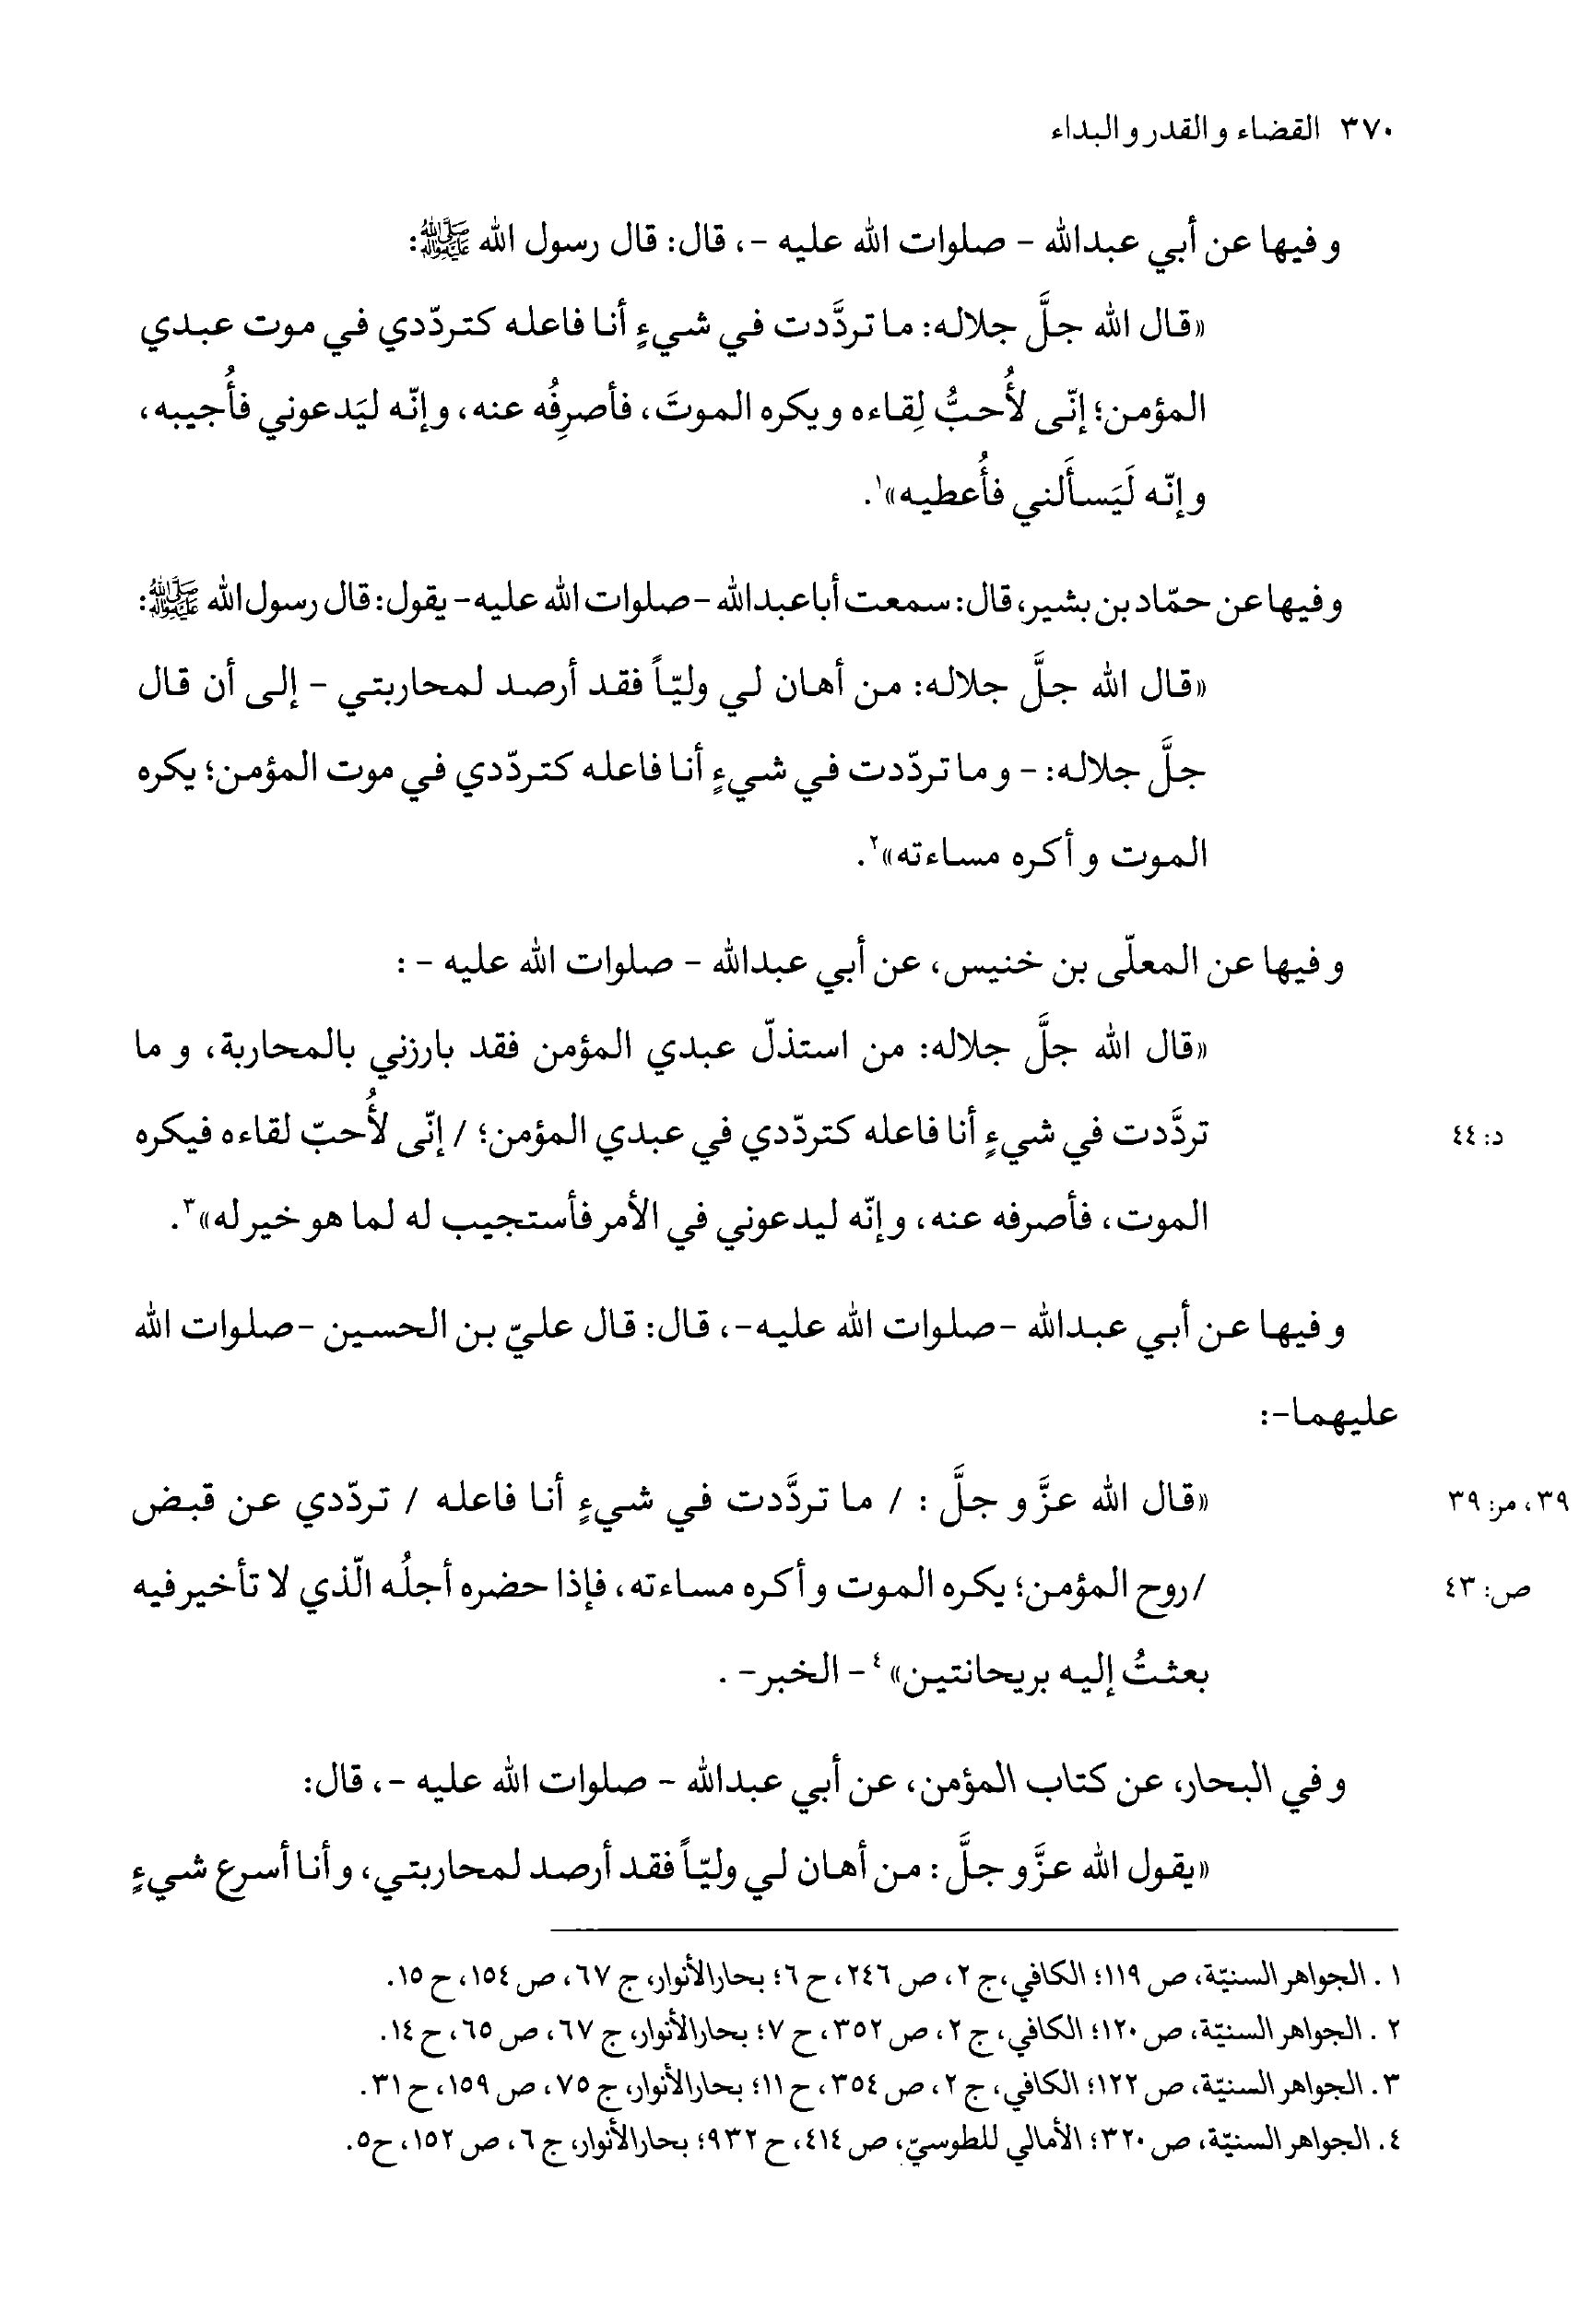 ٣٧٠ القضاء و القدر و البداء
و فيها عن أبي عبدالله - صلوات الله عليه -، قال: قال رسول الله ﷺ:
«قال الله جلَّ جلاله: ما تردَّدت في شيءٍ أنا فاعله كتردّدي في موت عبدي
المؤمن؛ إنّى لأُحبُّ لِقاءه و يكره الموتَ، فأصرِفُه عنه، و إنّه ليَدعوني فأُجيبه،
و إنّه لَيَسأَلني فأُعطيه»١.
و فيها عن حمّاد بن بشير، قال: سمعت أباعبدالله -صلوات الله عليه- يقول: قال رسول الله ﷺ:
«قال الله جلَّ جلاله: من أهان لي وليّاً فقد أرصد لمحاربتي - إلى أن قال
جلَّ جلاله: - و ما تردّدت في شيءٍ أنا فاعله كتردّدي في موت المؤمن؛ يكره
الموت و أكره مساءته»٢.
و فيها عن المعلّى بن خنيس، عن أبي عبدالله - صلوات الله عليه - :
«قال الله جلَّ جلاله: من استذلّ عبدي المؤمن فقد بارزني بالمحاربة، و ما
تردَّدت في شيءٍ أنا فاعله كتردّدي في عبدي المؤمن؛ / إنّى لأُحبّ لقاءه فيكره
د: ٤٤
الموت، فأصرفه عنه، و إنّه ليدعوني في الأمر فأستجيب له لما هو خير له»٣.
و فيها عن أبي عبدالله -صلوات الله عليه-، قال: قال عليّ بن الحسين -صلوات الله
عليهما-:
«قال الله عزَّ و جلَّ : / ما تردَّدت في شيءٍ أنا فاعله / تردّدي عن قبض
٣٩، مر: ٣٩
/ روح المؤمن؛ يكره الموت و أكره مساءته، فإذا حضره أجلُه الّذي لا تأخير فيه
ص: ٤٣
بعثتُ إليه بريحانتين»٤ - الخبر- .
و في البحار، عن كتاب المؤمن، عن أبي عبدالله - صلوات الله عليه -، قال:
«يقول الله عزَّ و جلَّ : من أهان لي وليّاً فقد أرصد لمحاربتي، و أنا أسرع شيءٍ
١ . الجواهر السنيّة، ص ١١٩؛ الكافي،ج ٢، ص ٢٤٦، ح ٦؛ بحارالأنوار، ج ٦٧، ص ١٥٤، ح ١٥.
٢ . الجواهر السنيّة، ص ١٢٠؛ الكافي، ج ٢، ص ٣٥٢، ح ٧؛ بحارالأنوار، ج ٦٧، ص ٦٥، ح ١٤.
٣. الجواهر السنيّة، ص ١٢٢؛ الكافي، ج ٢، ص ٣٥٤، ح ١١؛ بحارالأنوار، ج ٧٥، ص ١٥٩، ح ٣١.
٤. الجواهر السنيّة، ص ٣٢٠؛ الأمالي للطوسيّ، ص ٤١٤، ح ٩٣٢؛ بحارالأنوار، ج ٦، ص ١٥٢، ح٥.